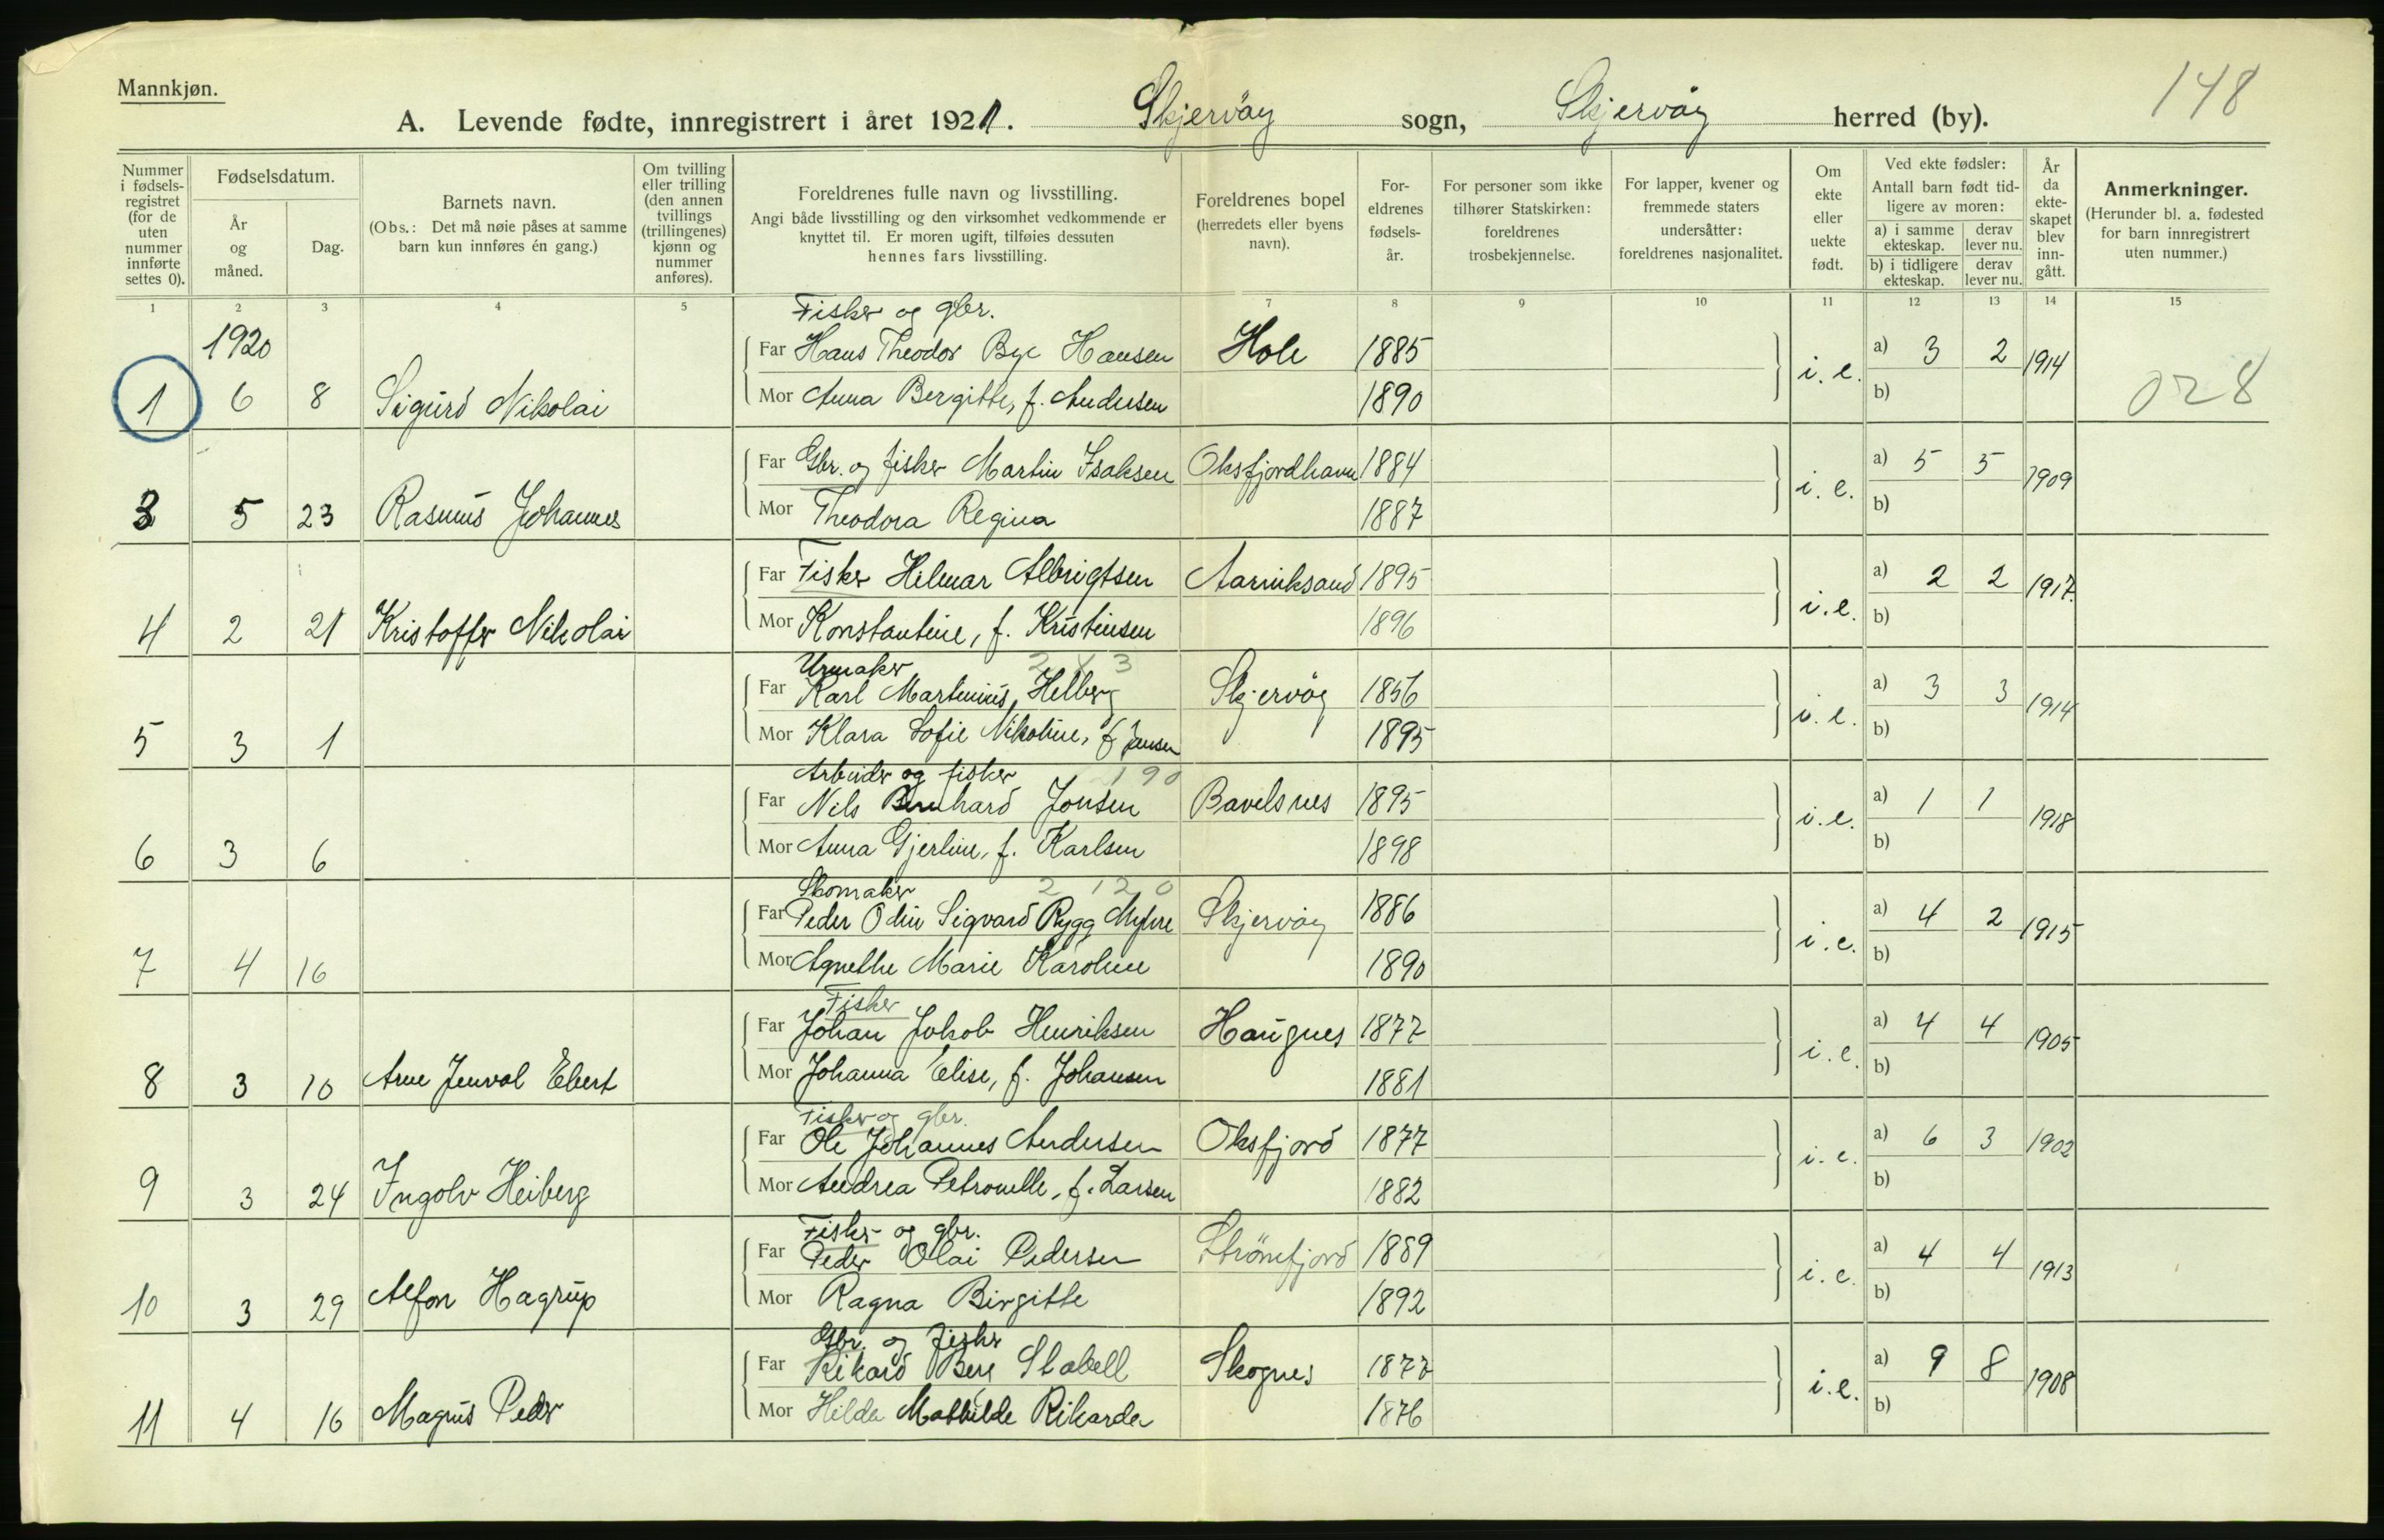 Mannkjøn.
148
A. Levende fødte, innregistrert i året 1921. Skjervöy sogn, Skjervöy herred (by).
Nummer i fødsels-registret (for de uten nummer innførte settes 0).
Fødselsdatum.
År og måned.
Dag.
Barnets navn.
(Obs.: Det må nøie påses at samme barn kun innføres én gang.)
Om tvilling eller trilling (den annen tvillings (trillingenes) kjønn og nummer anføres).
Foreldrenes fulle navn og livsstilling.
Angi både livsstilling og den virksomhet vedkommende er knyttet til. Er moren ugift, tilføies dessuten hennes fars livsstilling.
Foreldrenes bopel (herredets eller byens navn).
For-eldrenes fødsels-år.
For personer som ikke tilhører Statskirken: foreldrenes trosbekjennelse.
For lapper, kvener og fremmede staters undersåtter: foreldrenes nasjonalitet.
Om ekte eller uekte født.
Ved ekte fødsler: Antall barn født tid-ligere av moren:
a) i samme ekteskap. derav lever nu.
b) i tidligere ekteskap. derav lever nu.
År da ekte-skapet blev inn-gått.
Anmerkninger.
(Herunder bl. a. fødested for barn innregistrert uten nummer.)
1 2 3 4 5 7 8 9 10 11 12 13 14 15
1920
Fisker og gbr.
Far Hans Theodor Bye Hansen Hole 1885 a) 3 2 1914
1 6 8 Sigurd Nikolai Mor Anna Bergitte, f. Andersen 1890 i. e. b) 028
Far Gbr. og fisker Martin Isaksen Oksfjordhavn 1884 a) 5 5 1909
3 5 23 Rasmus Johannes Mor Theodora Regina 1887 i. e. b)
Far Fisker Hilmar Albrigtsen 1895 a) 2 2 1917.
4 2 21 Kristoffer Nikolai Mor Konstantine, f. Kristensen 1896 i. e. b)
Urmaker 2 3
Far Karl Martinius Helberg Skjervöy 1856 a) 3 3 1914
5 3 1 Mor Klara Sofie Nikoline, f Jensen 1895 i. e. b)
Arbeider og fisker 190
Far Nils Bernhard Jonsen Bavelsnes 1895 a) 1 1 1918
6 3 6 Mor Anna Gjerline, f. Karlsen 1898 i. e. b)
Skomaker 2 120
Far Peder Odin Sigvard Rygg Myhre Skjervöy 1886 a) 4 2 1915
7 4 16 Mor Agnethe Marie Karoline 1890 i. e. b)
Fisker
Far Johan Jakob Henriksen Haugnes 1877 a) 4 4 1905
8 3 10 Arne Jenvol Ebert Mor Johanna Elise, f. Johansen 1881 i. e. b)
Fisker og gbr.
Far Ole Johannes Andersen Oksfjord 1877 a) 6 3 1902
9 3 24 Ingolv Heiberg Mor Andrea Petronelle, f. Larsen 1882 i. e. b)
Fisker og gbr.
Far Peder Olai Pedersen Strömfjord 1889 a) 4 4 1913
10 3 29 Alfon Hagrup Mor Ragna Birgitte 1892 i. e. b)
Gbr. og fisker
Far Rikard Berg Stabell Skognes 1877 a) 9 8 1908
11 4 16 Magnus Peder Mor Hilda Mathilde Rikarda 1876 i. e. b)